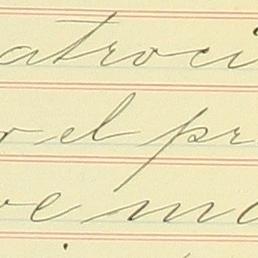 atroci
r el pr
ve ma